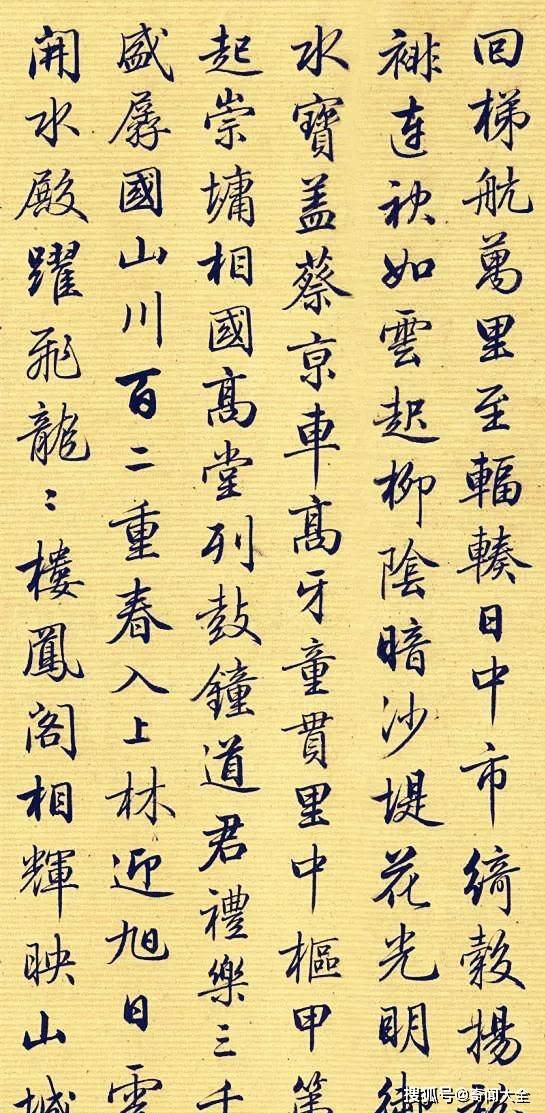 回梯航萬里至輻輳日中市綺縠揚
裶連袂如雲起柳陰暗沙堤花光明御
水寶蓋蔡京車高牙童貫里中樞甲第
起崇墉相國高堂列鼓鐘道君禮樂三千
盛孱國山川百二重春入上林迎旭日雲
開水殿躍飛龍〻樓鳳閣相輝映山城
搜狐号@奇闻大全